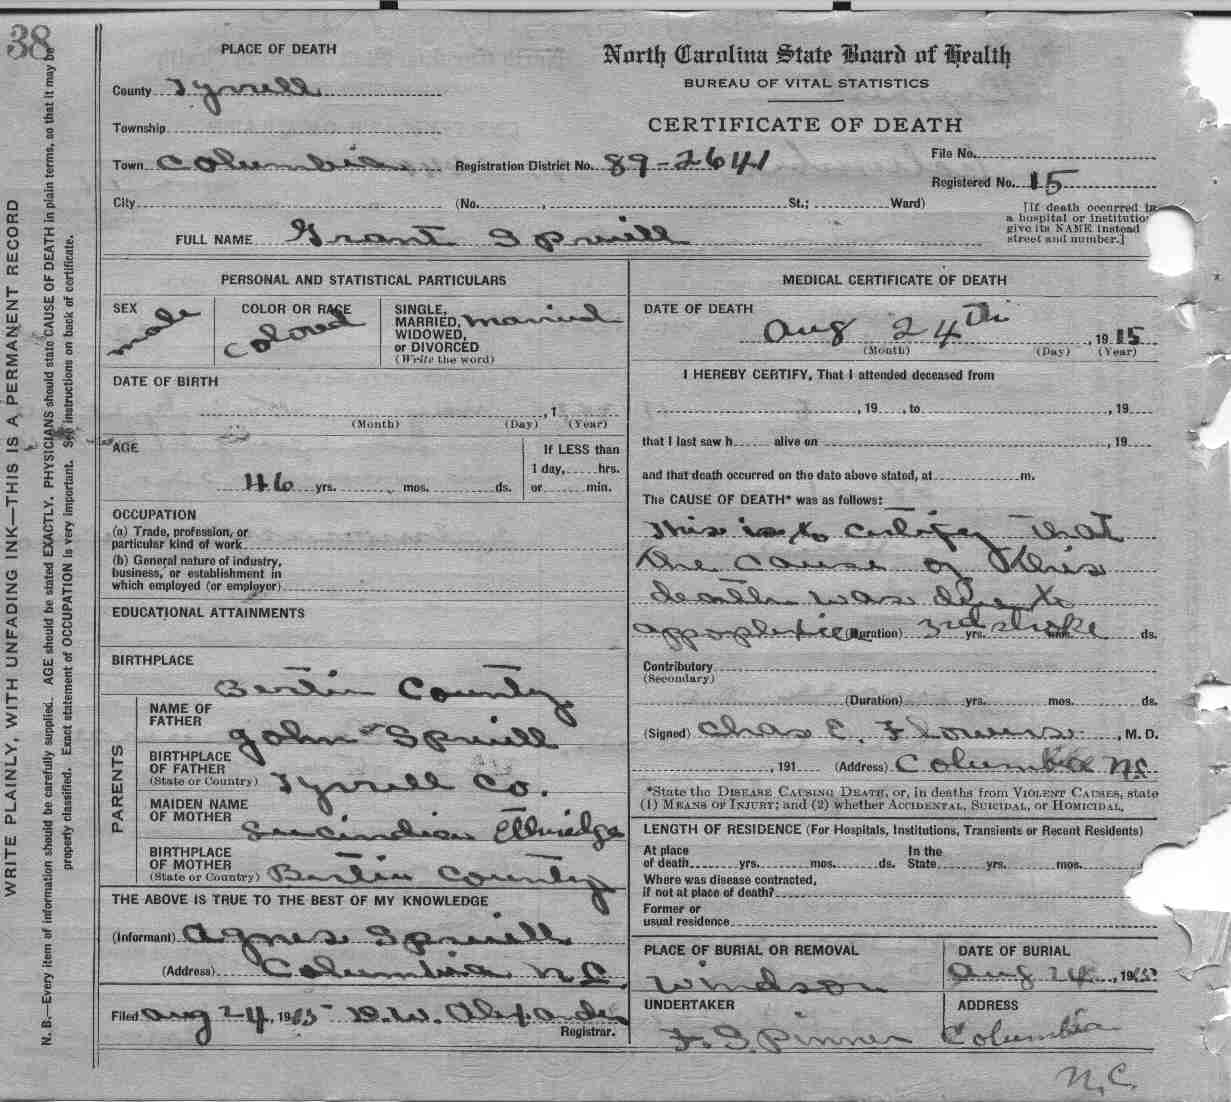 38
WRITE PLAINLY, WITH UNFADING INK—THIS IS A PERMANENT RECORD
N. B.—Every item of information should be carefully supplied. AGE should be stated EXACTLY. PHYSICIANS should state CAUSE OF DEATH in plain terms, so that it may be
properly classified. Exact statement of OCCUPATION is very important. See instructions on back of certificate.
PLACE OF DEATH
North Carolina State Board of Health
BUREAU OF VITAL STATISTICS
CERTIFICATE OF DEATH
County Tyrrell
Township
Town Columbia Registration District No. 89-2641
File No.
Registered No. 15
City (No. , St.; Ward)
[If death occurred in
a hospital or institution
give its NAME instead
street and number.]
FULL NAME Grant Spruill
PERSONAL AND STATISTICAL PARTICULARS
SEX male
COLOR OR RACE colored
SINGLE,
MARRIED, married
WIDOWED,
or DIVORCED
(Write the word)
DATE OF BIRTH
, 1
(Month) (Day) (Year)
AGE
46 yrs. mos. ds.
If LESS than
1 day, hrs.
or min.
OCCUPATION
(a) Trade, profession, or
particular kind of work
(b) General nature of industry,
business, or establishment in
which employed (or employer)
EDUCATIONAL ATTAINMENTS
BIRTHPLACE
Bertie County
PARENTS
NAME OF
FATHER John Spruill
BIRTHPLACE
OF FATHER
(State or Country) Tyrrell Co.
MAIDEN NAME
OF MOTHER
BIRTHPLACE
OF MOTHER
(State or Country) Bertie County
THE ABOVE IS TRUE TO THE BEST OF MY KNOWLEDGE
(Informant) Agnes Spruill
(Address) Columbia N.C.
Filed Aug 24, 1915 Alexander
Registrar.
MEDICAL CERTIFICATE OF DEATH
DATE OF DEATH
Aug 24th , 1915
(Month) (Day) (Year)
I HEREBY CERTIFY, That I attended deceased from
, 19 , to , 19
that I last saw h alive on , 19
and that death occurred on the date above stated, at m.
The CAUSE OF DEATH* was as follows:
This is to certify that
the cause of this
death was due to
(Duration) 3rd stroke yrs. mos. ds.
Contributory
(Secondary)
(Duration) yrs. mos. ds.
(Signed) Chas E. Flowers , M. D.
, 191 (Address) Columbia NC
*State the DISEASE CAUSING DEATH, or, in deaths from VIOLENT CAUSES, state
(1) MEANS OF INJURY; and (2) whether ACCIDENTAL, SUICIDAL, or HOMICIDAL.
LENGTH OF RESIDENCE (For Hospitals, Institutions, Transients or Recent Residents)
At place In the
of death yrs. mos. ds. State yrs. mos.
Where was disease contracted,
if not at place of death?
Former or
usual residence
PLACE OF BURIAL OR REMOVAL
Windsor
DATE OF BURIAL
Aug 24, 1915
UNDERTAKER
Pinner
ADDRESS
Columbia
N.C.